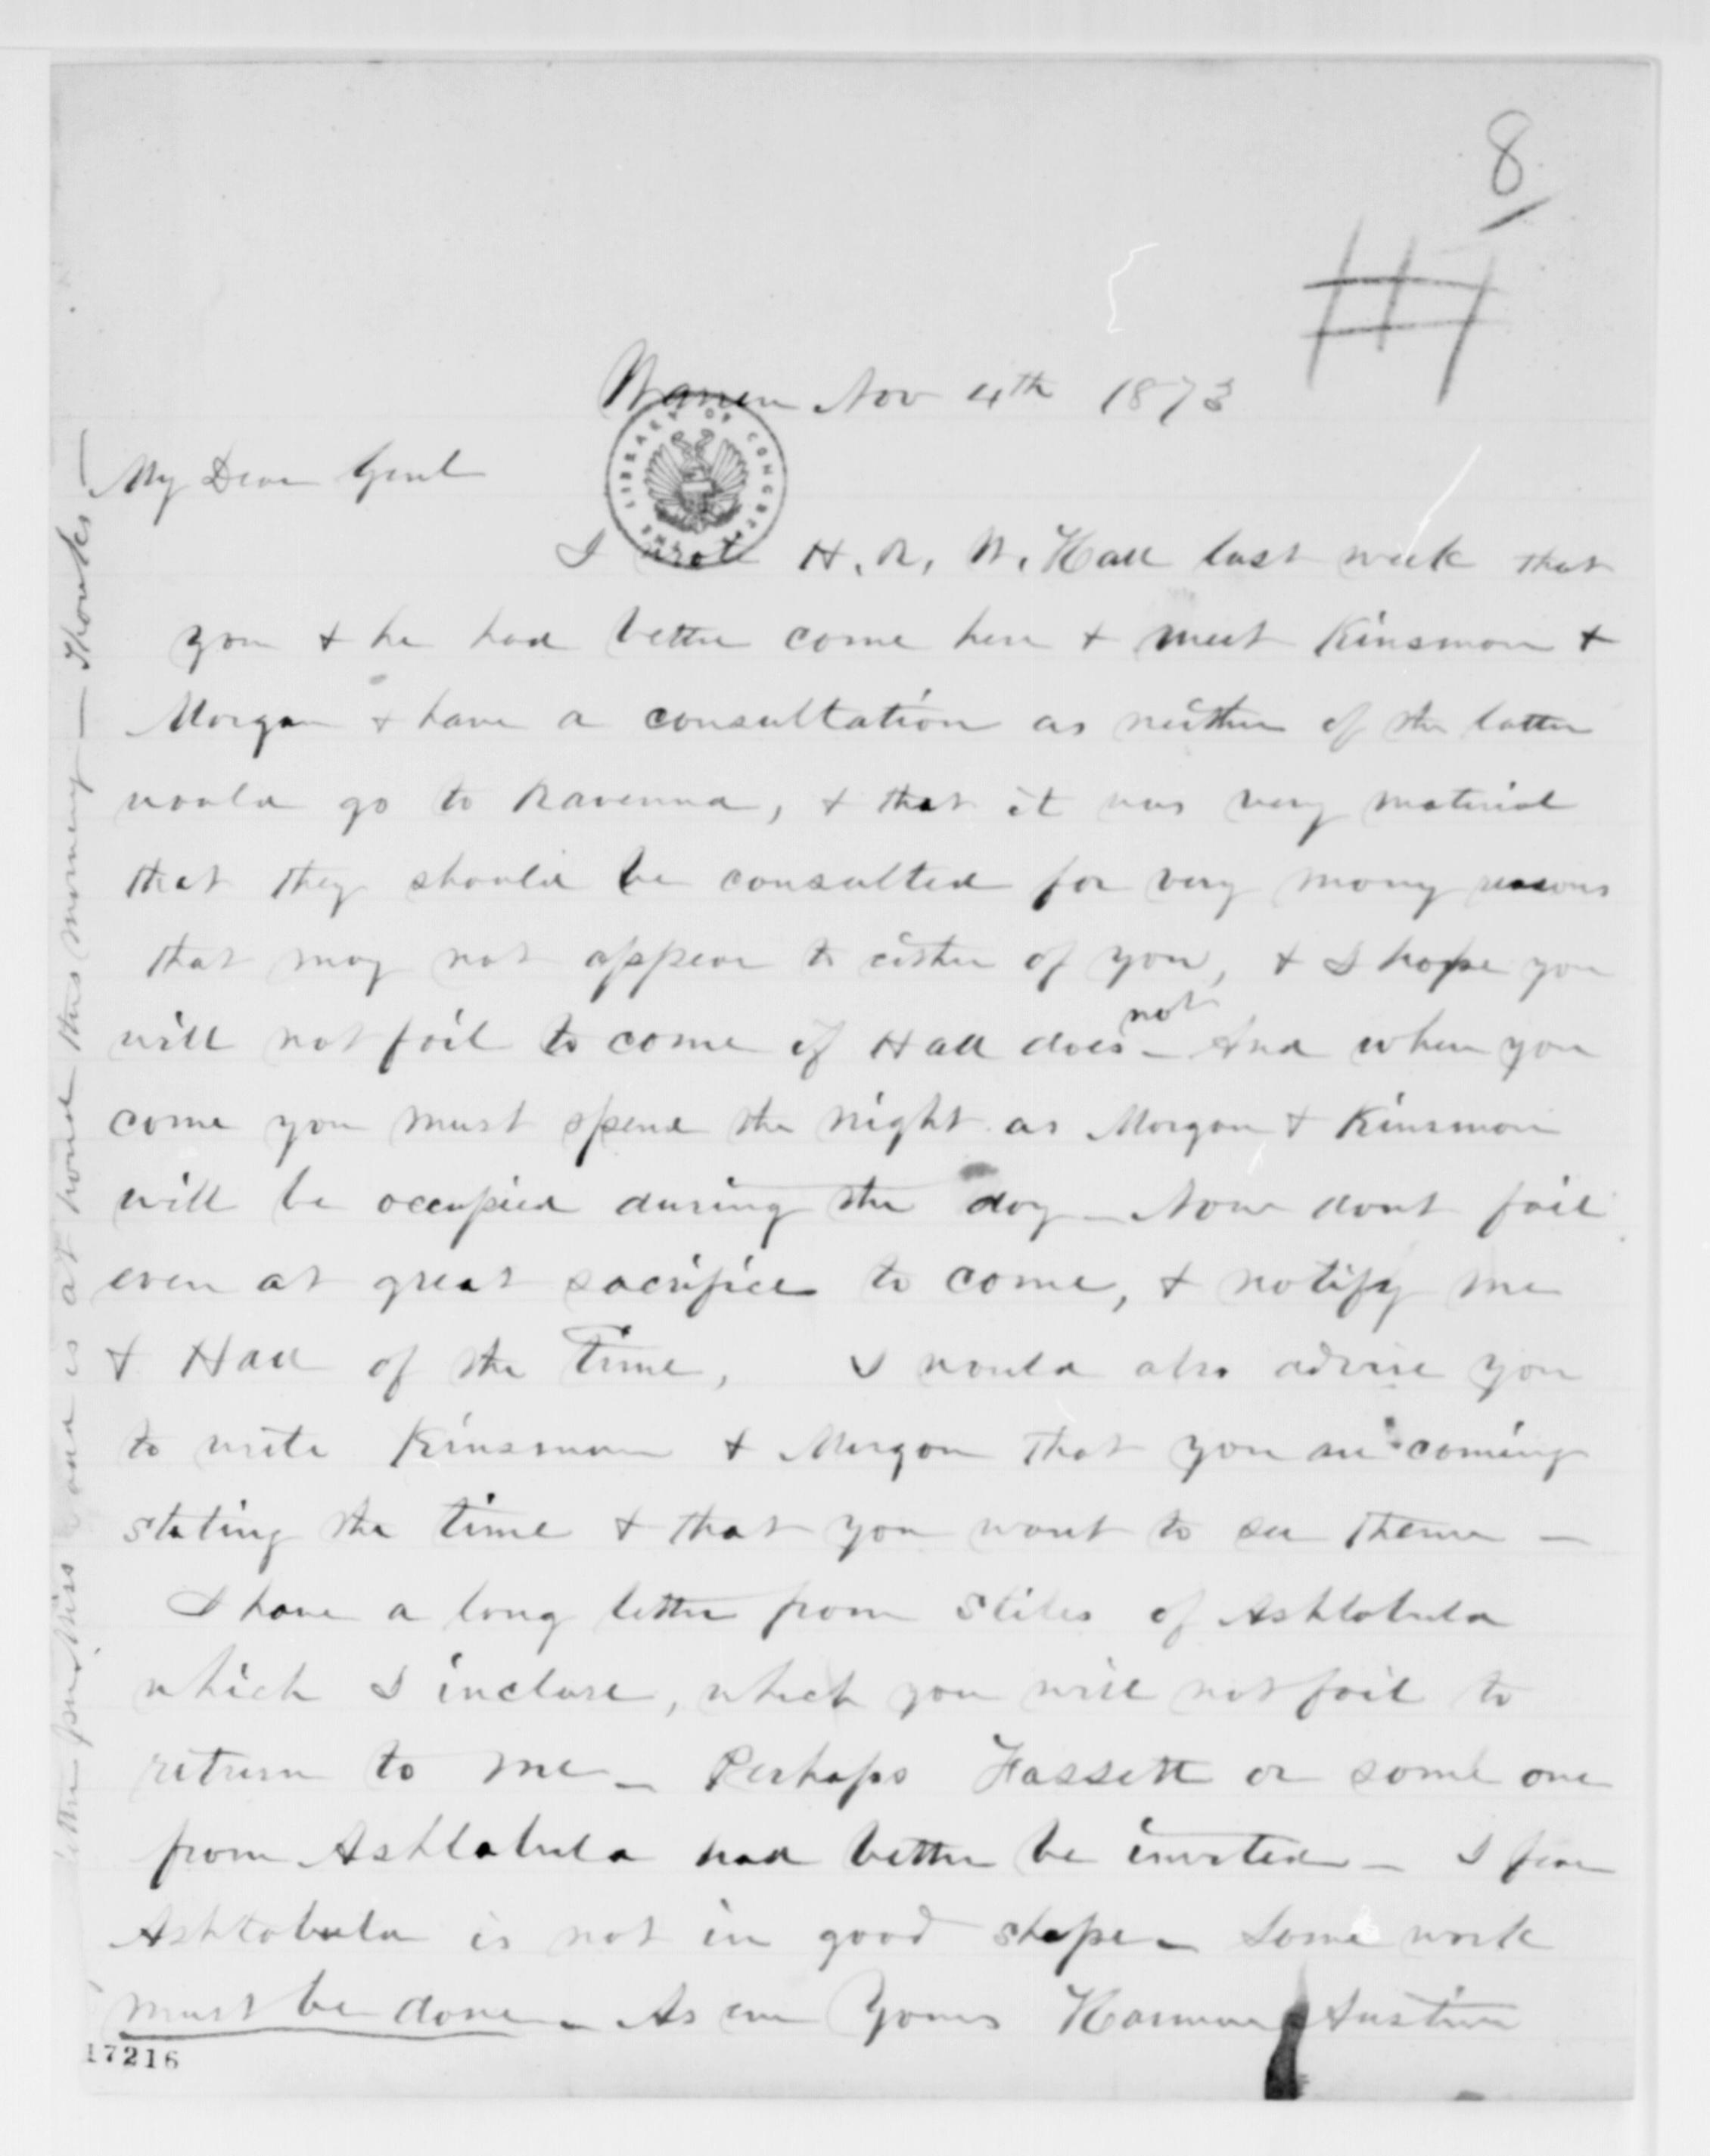 8
Warren Nov 4th 1873
My Dear Genl
I wrote H. R. W. Hall last week that
you & he had better come here & meet Kinsman &
Morgan & have a consultation as neither of the latter
would go to Ravenna, & that it was very material
that they should be consulted for very many reasons
that may not appear to either of you, & I hope you
will not fail to come if Hall does not - And when you
come you must spend the night as Morgan & Kinsman
will be occupied during the day - Now dont fail
even at great sacrifice to come, & notify me
& Hall of the time, I would also advise you
to write Kinsman & Morgan that you are coming
stating the time & that you want to see them —
I have a long letter from Stiles of Ashtabula
which I inclose, which you will not fail to
return to me - Perhaps Fassett or some one
from Ashtabula had better be invited - I fear
Ashtabula is not in good shape - Some work
must be done - As ever Yours Harmon Austin
17216
letter pr Miss is at hand this morning — Thanks —
THE LIBRARY OF CONGRESS